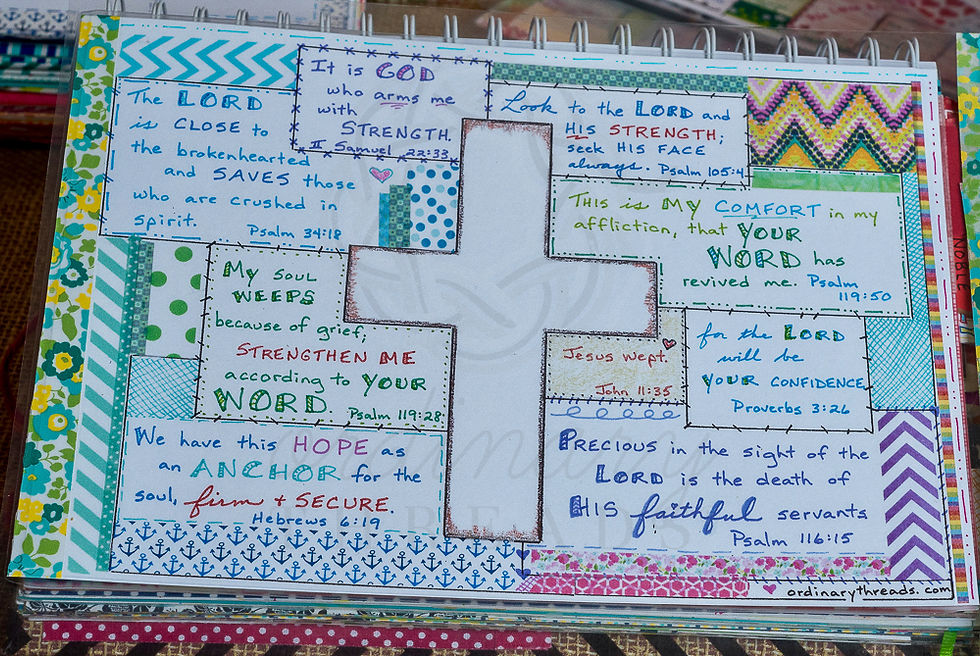 It is GOD
who arms me
with
STRENGTH.
II Samuel 22:33
The LORD
is CLOSE to
the brokenhearted
and SAVES those
who are crushed in
spirit.
Psalm 34:18
Look to the LORD and
HIS STRENGTH;
seek HIS FACE
always. Psalm 105:4
THIS is MY COMFORT in my
affliction, that YOUR
WORD has
revived me. Psalm
119:50
My SOUL
WEEPS
because of grief;
STRENGTHEN ME
according to YOUR
WORD. Psalm 119:28
Jesus wept.
John 11:35
for the LORD
will be
YOUR CONFIDENCE
Proverbs 3:26
We have this HOPE as
an ANCHOR for the
soul, firm + SECURE.
Hebrews 6:19
PRECIOUS in the sight of the
LORD is the death of
HIS faithful servants
Psalm 116:15
ordinarythreads.com
NOBLE